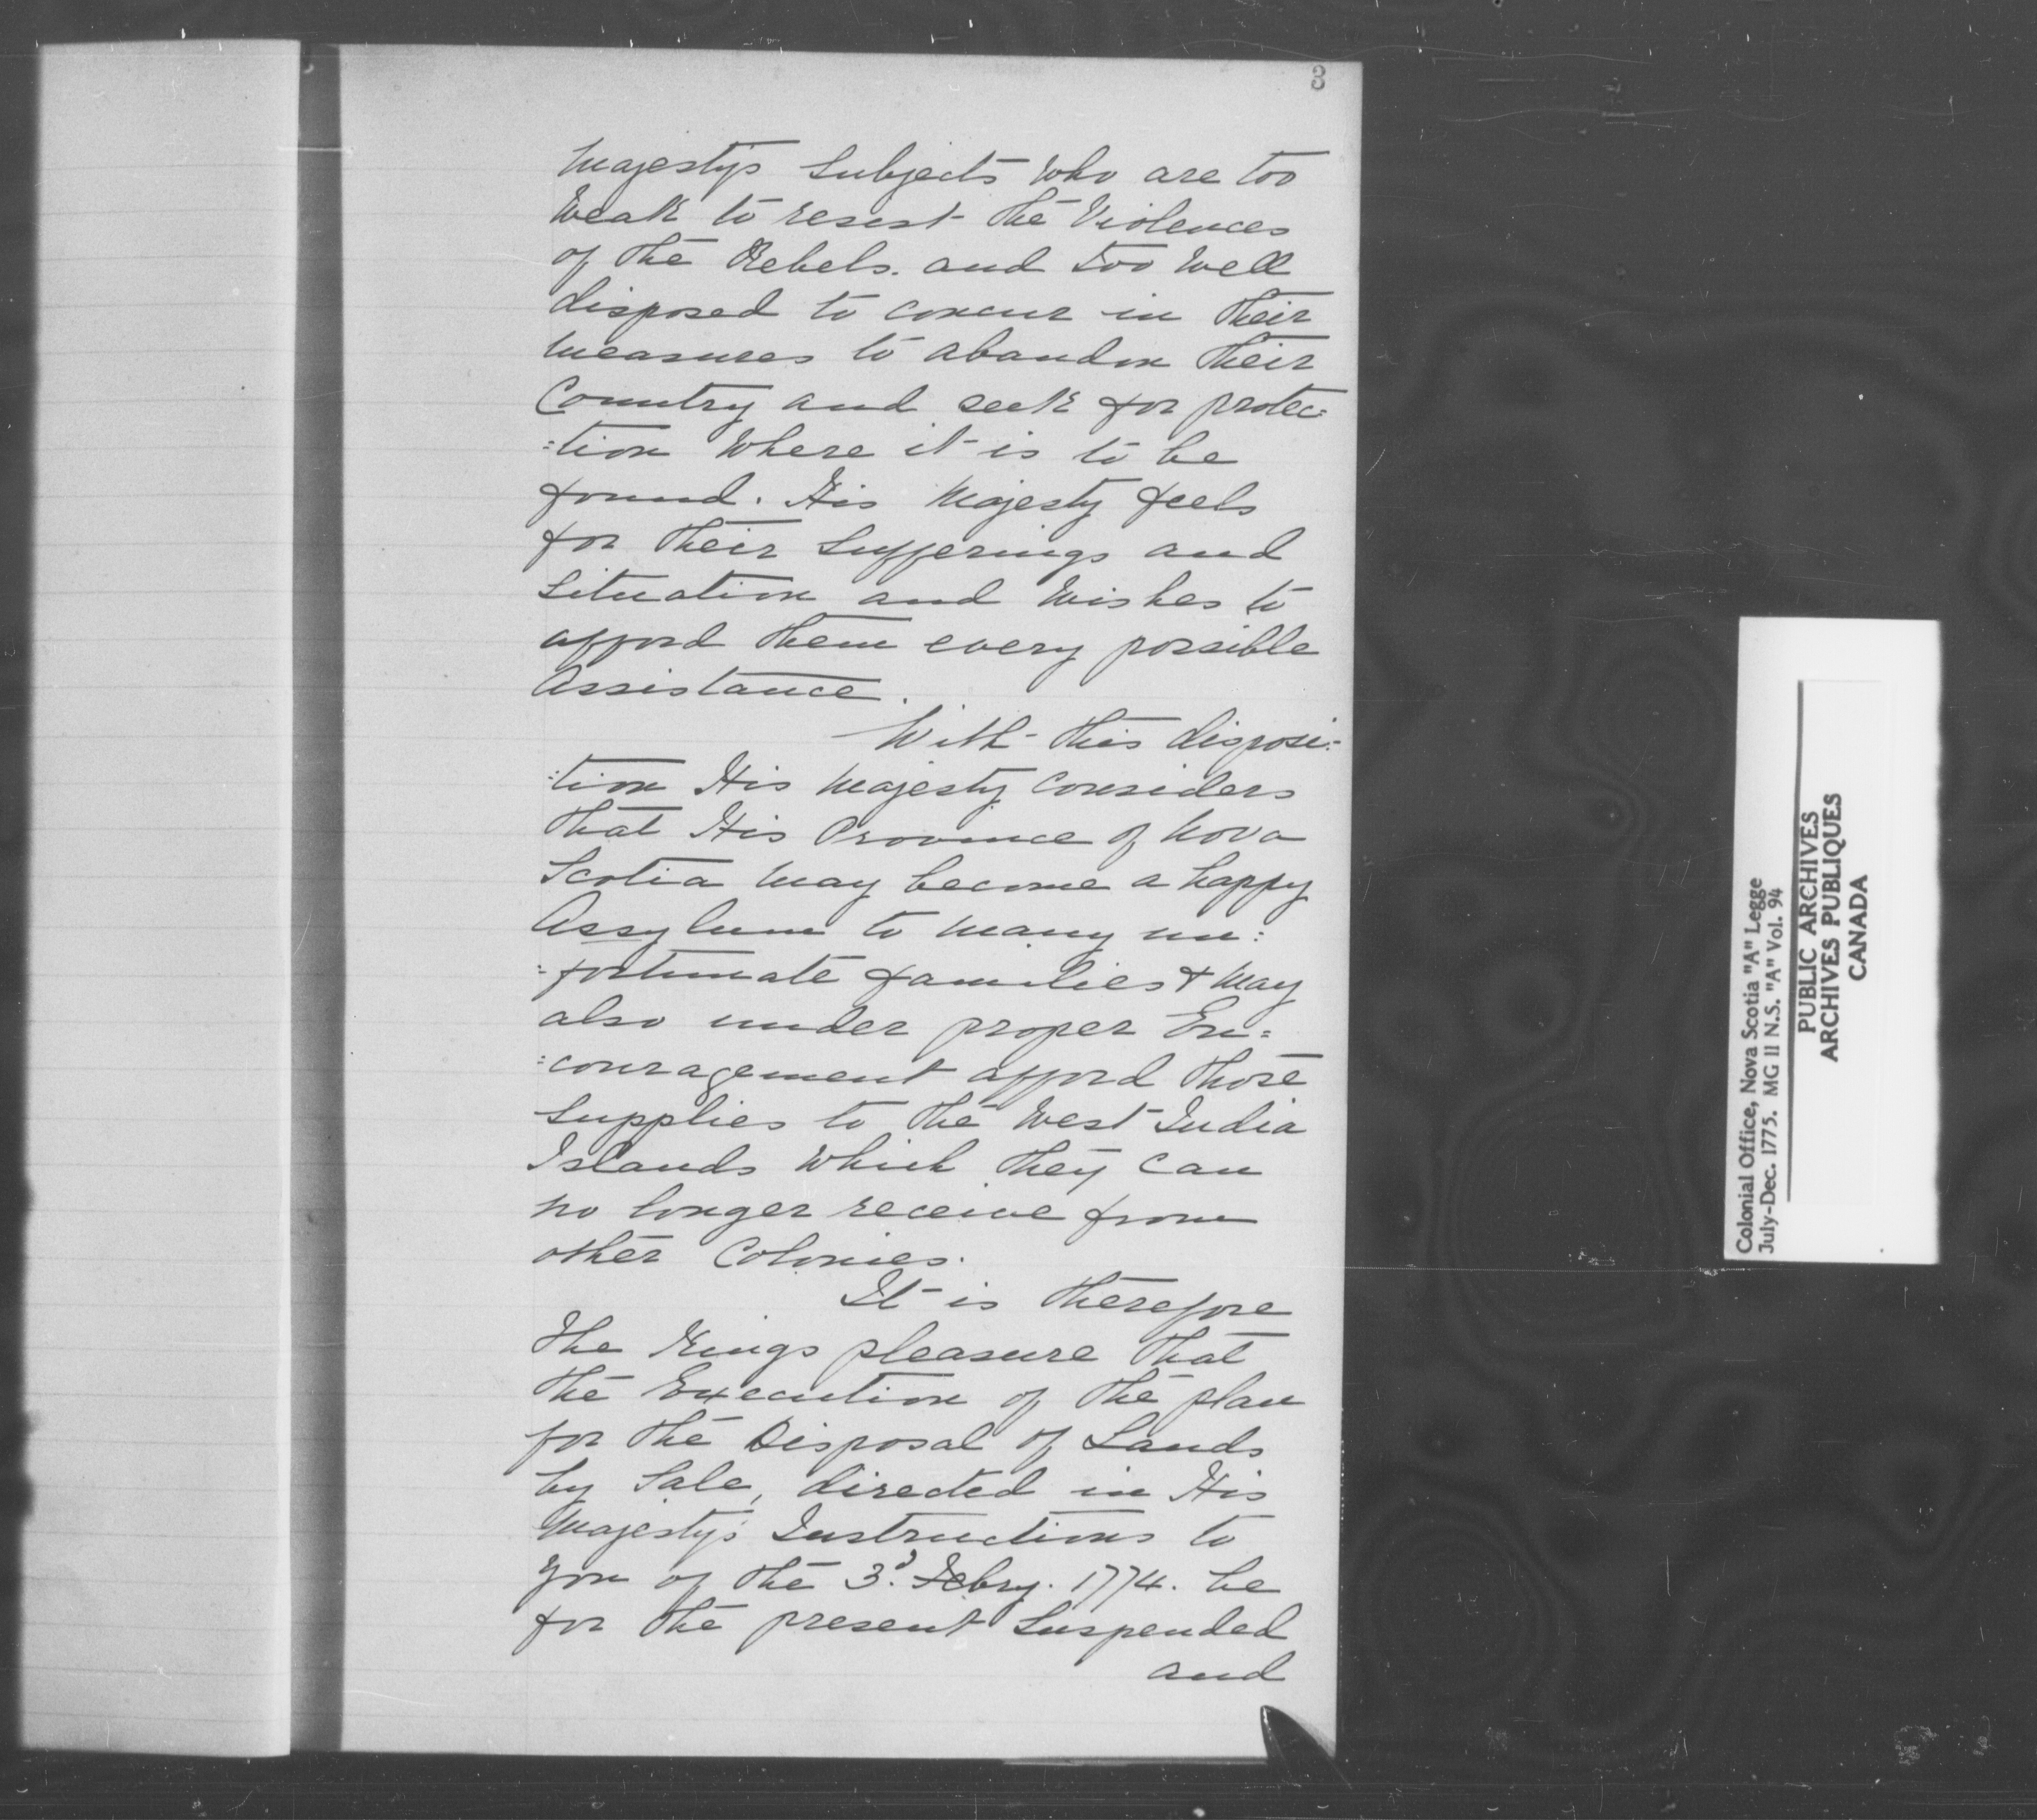 3
Majesty's Subjects who are too
Weak to resist the Violences
of the Rebels. and too well
disposed to concur in their
Measures to abandon their
Country and seek for protec=
=tion Where it is to be
found. His Majesty feels
for their Sufferings and
Situation and Wishes to
afford them every possible
Assistance.
With this disposi=
=tion His Majesty Considers
that His Province of Nova
Scotia May become a happy
Assylum to Many un=
=fortunate families & May
also under proper En=
=couragement afford those
Supplies to the West India
Islands Which they can
no longer receive from
other Colonies.
It is therefore
the Kings pleasure that
the Execution of the plan
for the Disposal of Lands
by Sale, directed in His
Majesty's Instructions to
you of the 3d. Febry. 1774. be
for the present Suspended
and
Colonial Office, Nova Scotia "A" Legge
July-Dec. 1775. MG 11 N.S. "A" Vol. 94
PUBLIC ARCHIVES
ARCHIVES PUBLIQUES
CANADA